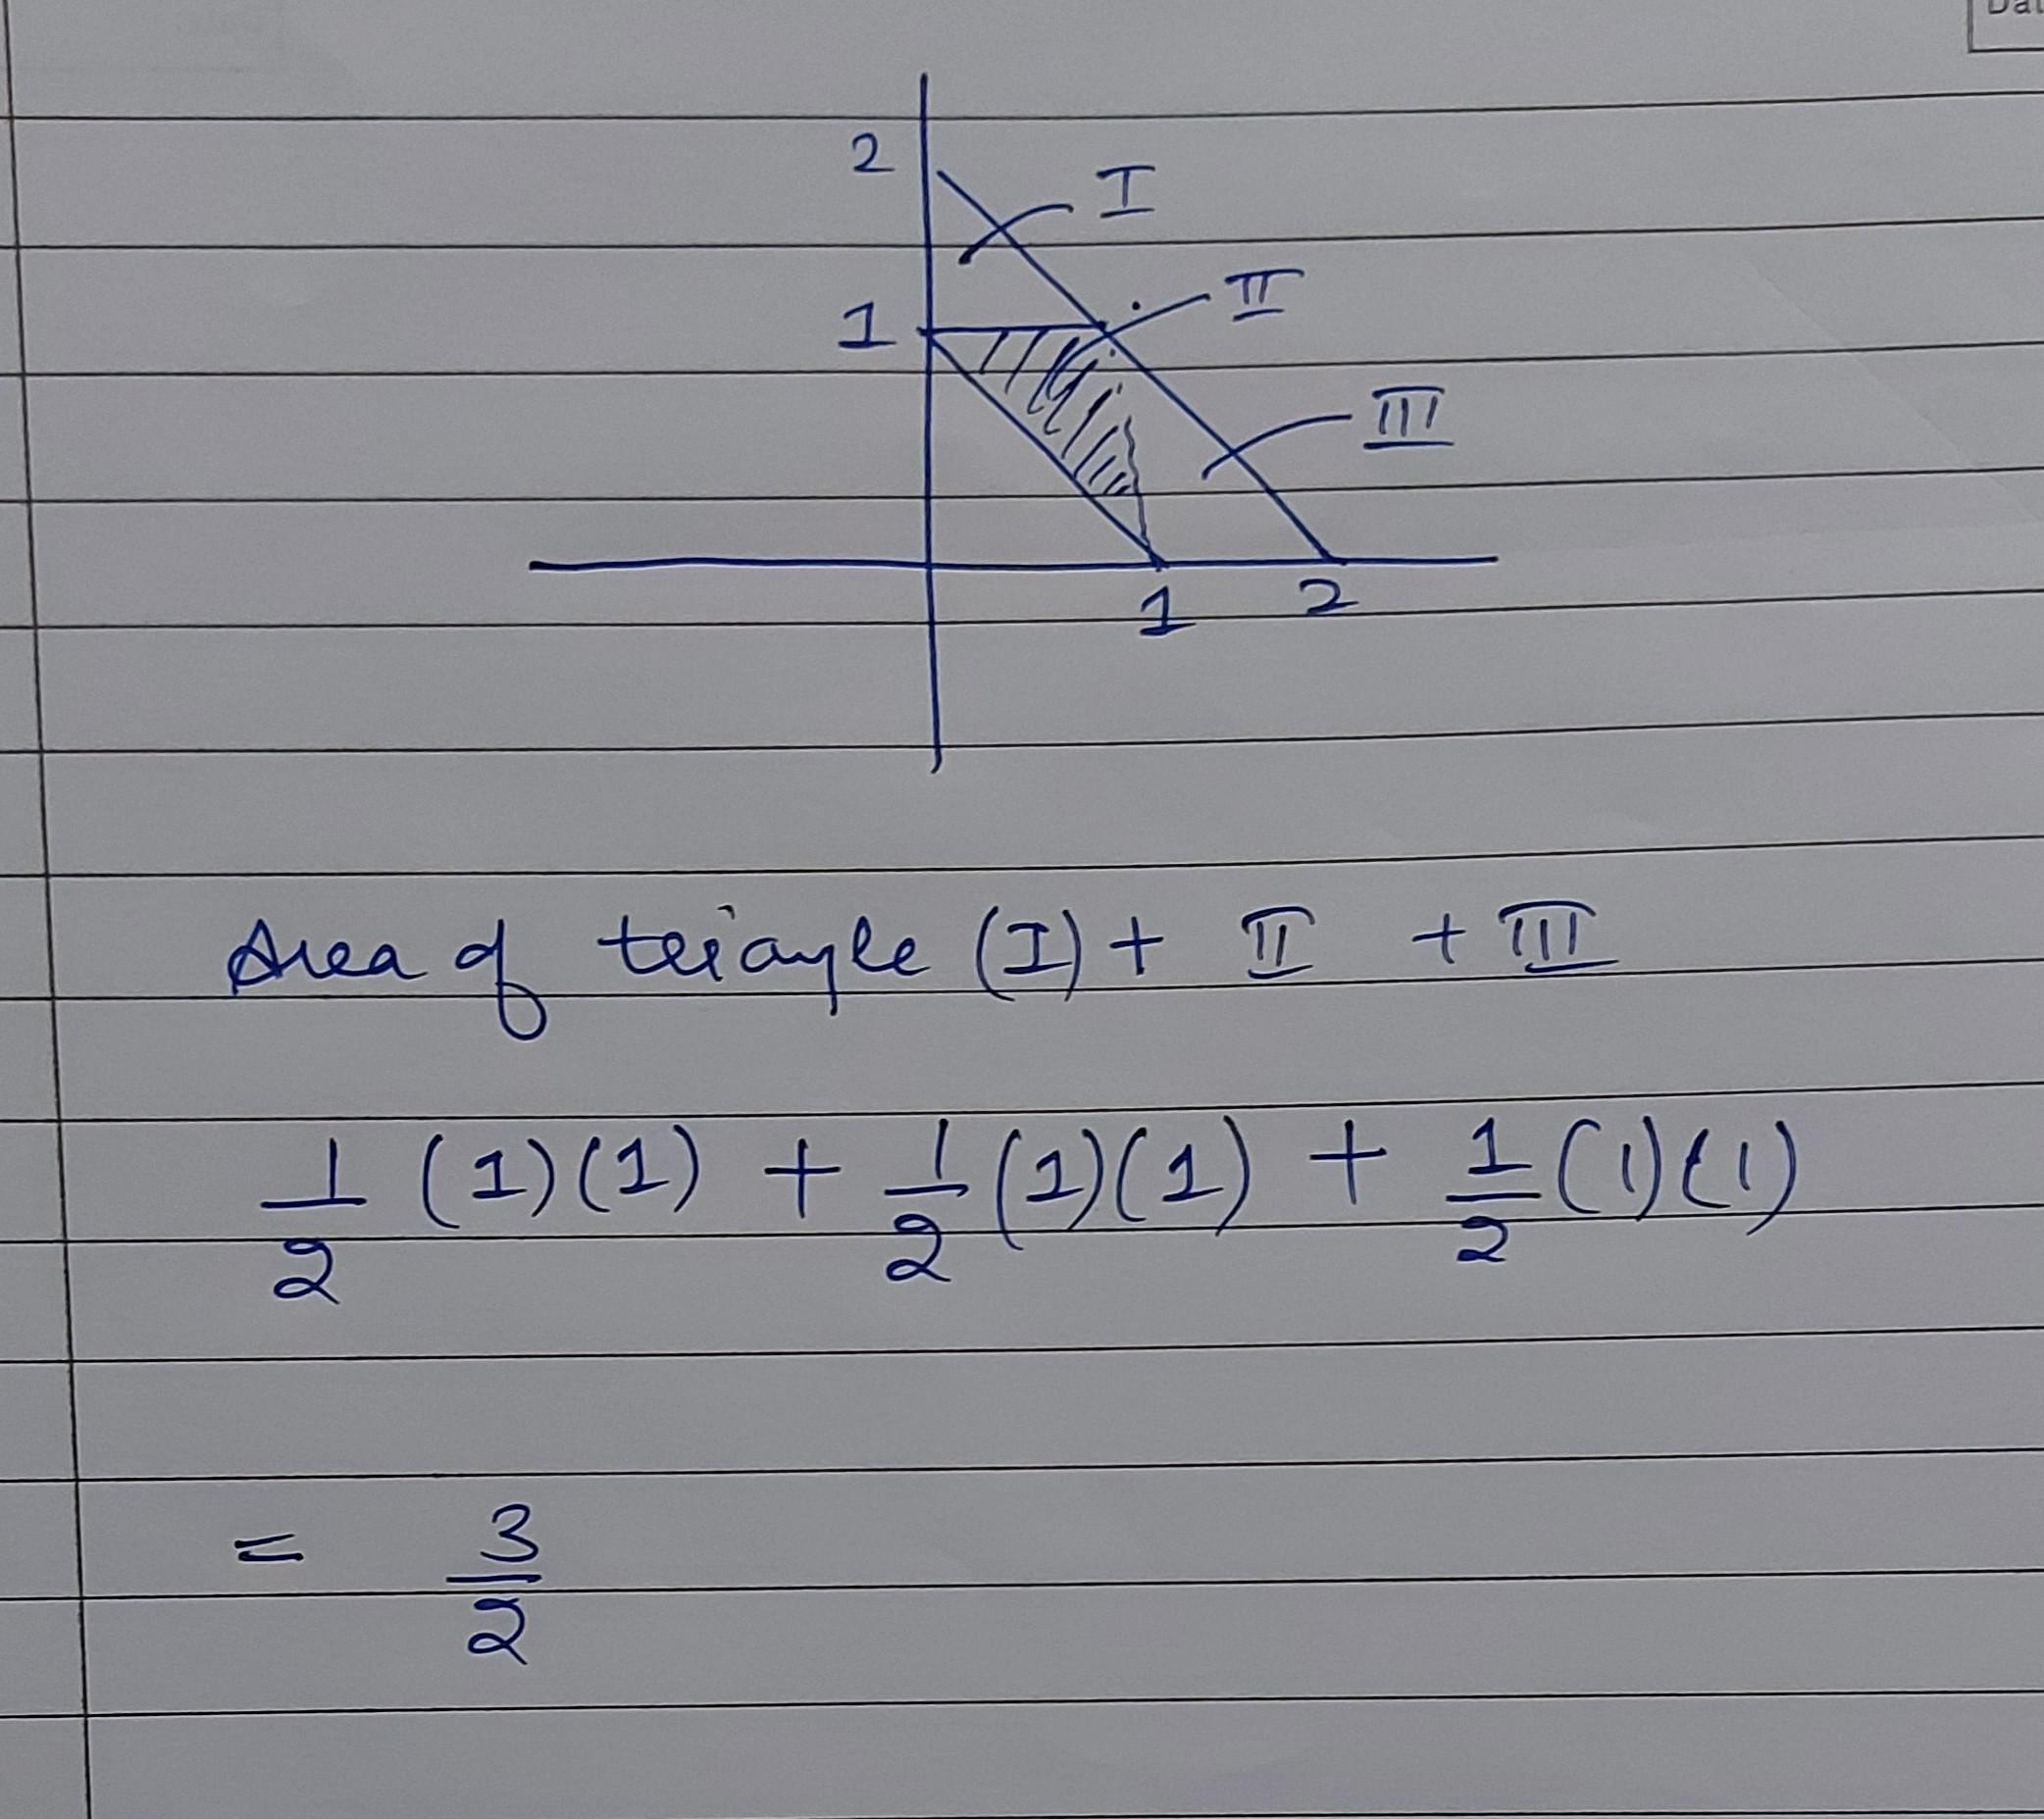 Dat
2
I
II
1
III
1 2
Area of triangle (I) + II + III
1/2 (1)(1) + 1/2 (1)(1) + 1/2 (1)(1)
= 3/2